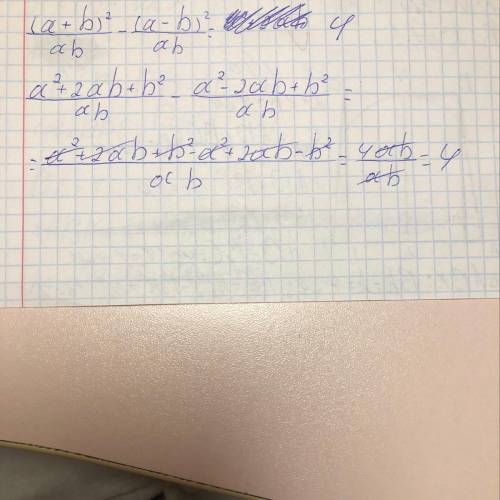 (a+b)²/ab - (a-b)²/ab = 4
a²+2ab+b²/ab - a²-2ab+b²/ab =
= a²+2ab+b²-a²+2ab-b²/ab = 4ab/ab = 4